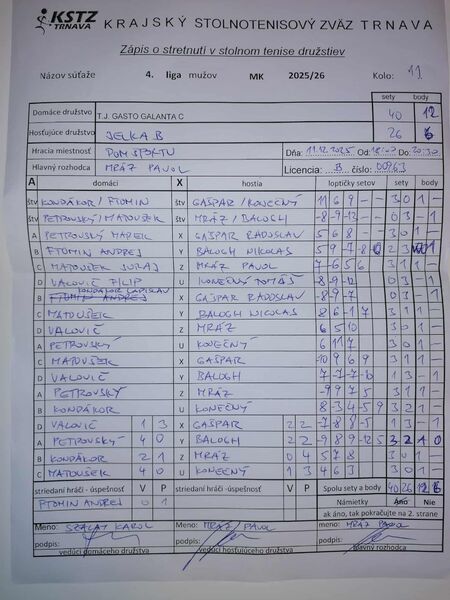 KSTZ
TRNAVA
KRAJSKÝ STOLNOTENISOVÝ ZVÄZ TRNAVA
Zápis o stretnutí v stolnom tenise družstiev
Názov súťaže 4. liga mužov MK 2025/26 Kolo: 11.
sety body
Domáce družstvo T.J. GASTO GALANTA C 40 12
Hosťujúce družstvo JELKA B 26 6
Hracia miestnosť DOM ŠPORTU Dňa: 11.12.2025 Od: 18:00 Do: 20:30
Hlavný rozhodca MRÁZ PAVOL Licencia: B číslo: 00963
A domáci X hostia loptičky setov sety body
štv KONDÁKOR / FTOMIN štv GAŠPAR / KONEČNÝ 11 6 9 - - 3 0 1 -
štv PETROVSKÝ / MATOUŠEK štv MRÁZ / BALOGH -8 -9 -12 - - 0 3 - 1
A PETROVSKÝ MAREK X GAŠPAR RADOSLAV 5 6 8 - - 3 0 1 -
B FTOMIN ANDREJ Y BALOGH NIKOLAS 2 3 1
C MATOUŠEK JURAJ Z MRÁZ PAVOL 7 -6 5 6 3 1 1 -
D VALOVIČ FILIP U KONEČNÝ TOMÁŠ -8 -9 -12 0 3 - 1
KONDÁKOR LADISLAV
B FTOMIN ANDREJ X GAŠPAR RADOSLAV -8 -9 -7 0 3 - 1
C MATOUŠEK Y BALOGH NICOLAS 8 6 -1 7 3 1 1 -
D VALOVIČ Z MRÁZ 6 5 10 3 0 1 -
A PETROVSKÝ U KONEČNÝ 6 11 7 3 0 1 -
C MATOUŠEK X GAŠPAR -10 9 6 9 3 1 1 -
D VALOVIČ Y BALOGH 1 3 - 1
A PETROVSKÝ Z MRÁZ -9 9 7 5 3 1 1 -
B KONDÁKOR U KONEČNÝ 8 -3 4 -5 9 3 2 1 -
D VALOVIČ 1 3 X GAŠPAR 2 2 -7 8 -8 -5 1 3 - 1
A PETROVSKÝ 4 0 Y BALOGH 2 2 -9 8 9 -12 5 3 2 1 0
B KONDÁKOR 2 1 Z MRÁZ 0 4 5 7 8 3 0 1 -
C MATOUŠEK 4 0 U KONEČNÝ 1 3 4 6 3 3 0 1 -
striedaní hráči - úspešnosť V P striedaní hráči - úspešnosť V P Spolu sety a body 40 26 12 6
FTOMIN ANDREJ 0 1 Námietky Áno Nie
ak áno, tak pokračujte na 2. strane
Meno: SZALAY KAROL Meno: MRÁZ PAVOL meno: MRÁZ PAVOL
podpis: podpis: podpis:
vedúci domáceho družstva vedúci hosťujúceho družstva hlavný rozhodca